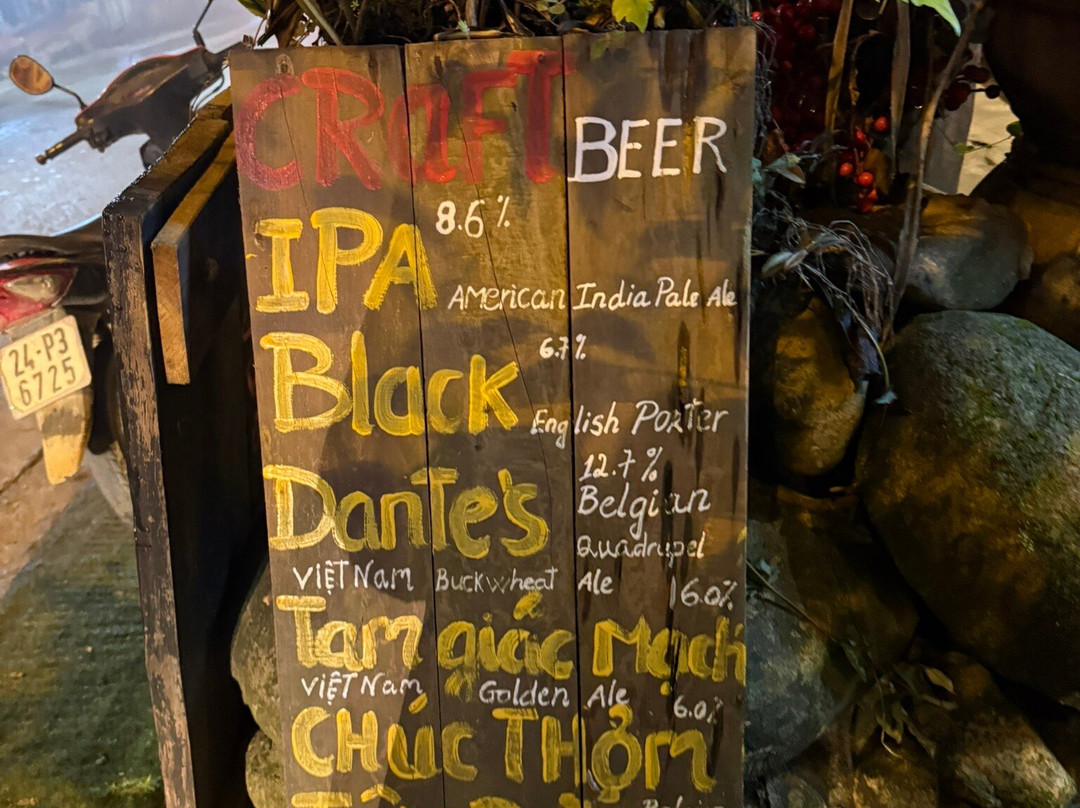 CRaFT BEER
IPA 8.6%
American India Pale Ale
Black 6.7%
English Porter
Dante's 12.7%
Belgian
Quadrupel
VIỆT Nam Buckwheat Ale 6.0%
Tam giác Mạch
VIỆT Nam Golden Ale 6.0%
CHúc THỎm
24-P3
6725